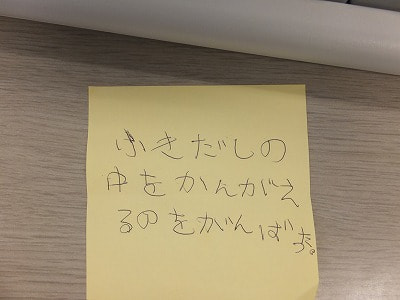 ふきだしの
中をかんがえ
るのをがんばった。